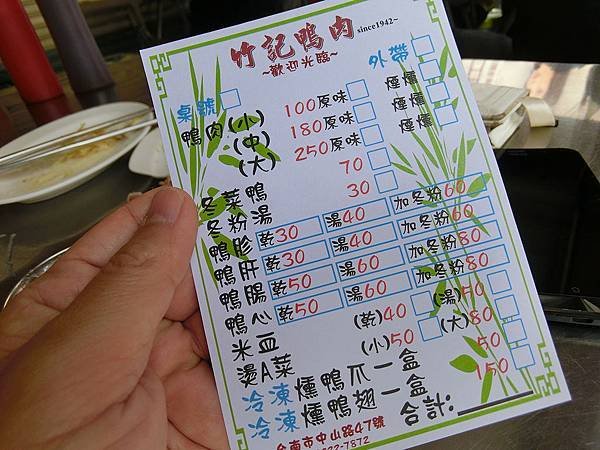 竹記鴨肉 since1942~
~歡迎光臨~
外帶
桌號
鴨肉(小) 100 原味 煙燻
(中) 180 原味 煙燻
(大) 250 原味 煙燻
冬菜鴨 70
冬粉湯 30
鴨胗 乾30 湯40 加冬粉60
鴨肝 乾30 湯40 加冬粉60
鴨腸 乾50 湯60 加冬粉80
鴨心 乾50 湯60 加冬粉80
米血 (乾)40 (湯)50
燙A菜 (小)50 (大)80
冷凍燻鴨爪一盒 50
冷凍燻鴨翅一盒 150
合計:
台南市中山路47號
822-7872